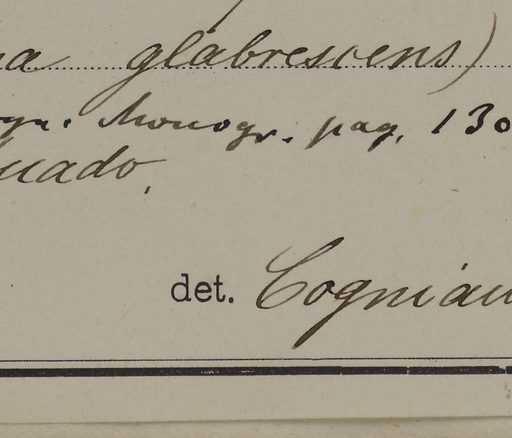 a glabrescens)
Monogr. pag. 130
uado,
det. Cogniau